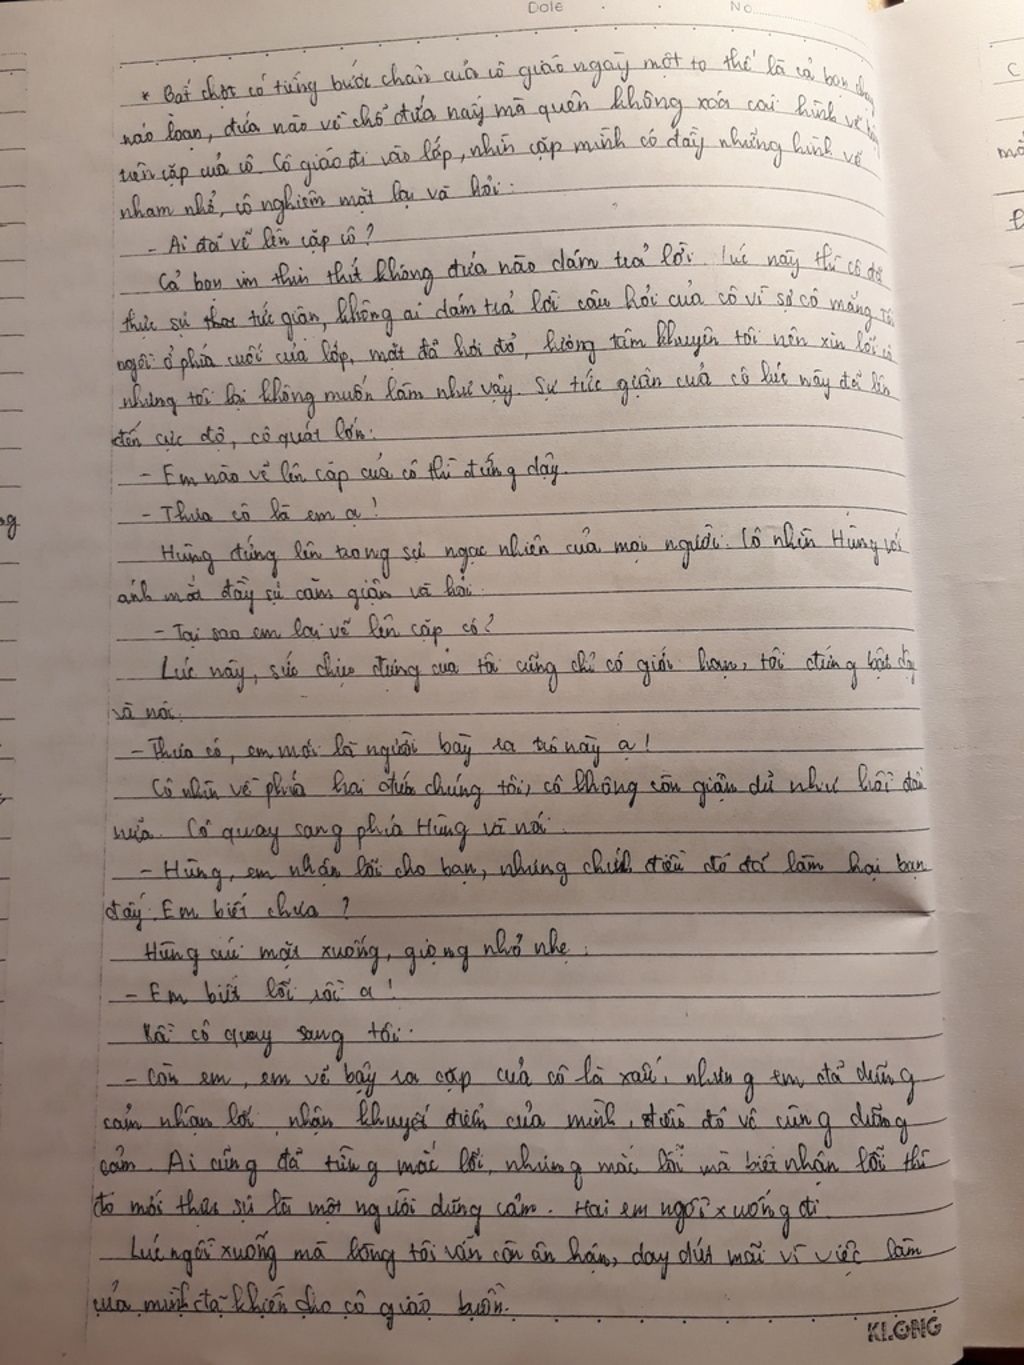 Date No.
* Bất chợt có tiếng bước chân của cô giáo ngày một to thế là cả bọn chạy
náo loạn, đứa nào về chỗ đứa nấy mà quên không xóa cái hình vẽ bậy
trên cặp của cô. Cô giáo đi vào lớp, nhìn cặp mình có đầy những hình vẽ
nham nhở, cô nghiêm mặt lại và hỏi:
- Ai đã vẽ lên cặp cô?
Cả bọn im thin thít không đứa nào dám trả lời. Lúc này thì cô đã
thực sự tức giận, không ai dám trả lời câu hỏi của cô vì sợ cô mắng. Tôi
ngồi ở phía cuối của lớp, mặt đã hơi đỏ, lương tâm khuyên tôi nên xin lỗi cô
nhưng tôi lại không muốn làm như vậy. Sự tức giận của cô lúc này đã lên
đến cực độ, cô quát lớn:
- Em nào vẽ lên cặp của cô thì đứng dậy.
- Thưa cô là em ạ!
Hùng đứng lên trong sự ngạc nhiên của mọi người. Cô nhìn Hùng với
ánh mắt đầy sự căm giận và hỏi:
- Tại sao em lại vẽ lên cặp cô?
Lúc này, sức chịu đựng của tôi cũng chỉ có giới hạn, tôi đứng bật dậy
và nói:
- Thưa cô, em mới là người bày ra trò này ạ!
Cô nhìn về phía hai đứa chúng tôi, cô không còn giận dữ như hồi đầu
nữa. Cô quay sang phía Hùng và nói:
- Hùng, em nhận lỗi cho bạn, nhưng chính điều đó đã làm hại bạn
đấy. Em biết chưa?
Hùng cúi mặt xuống, giọng nhỏ nhẹ:
- Em biết lỗi rồi ạ!
Rồi cô quay sang tôi:
- Còn em, em vẽ bậy ra cặp của cô là xấu, nhưng em đã dũng
cảm nhận lỗi, nhận khuyết điểm của mình, điều đó vô cùng dũng
cảm. Ai cũng đã từng mắc lỗi, nhưng mắc lỗi mà biết nhận lỗi thì
đó mới thực sự là một người dũng cảm. Hai em ngồi xuống đi
Lúc ngồi xuống mà lòng tôi vẫn còn ân hận, day dứt mãi vì việc làm
của mình đã khiến cho cô giáo buồn.
KLONG